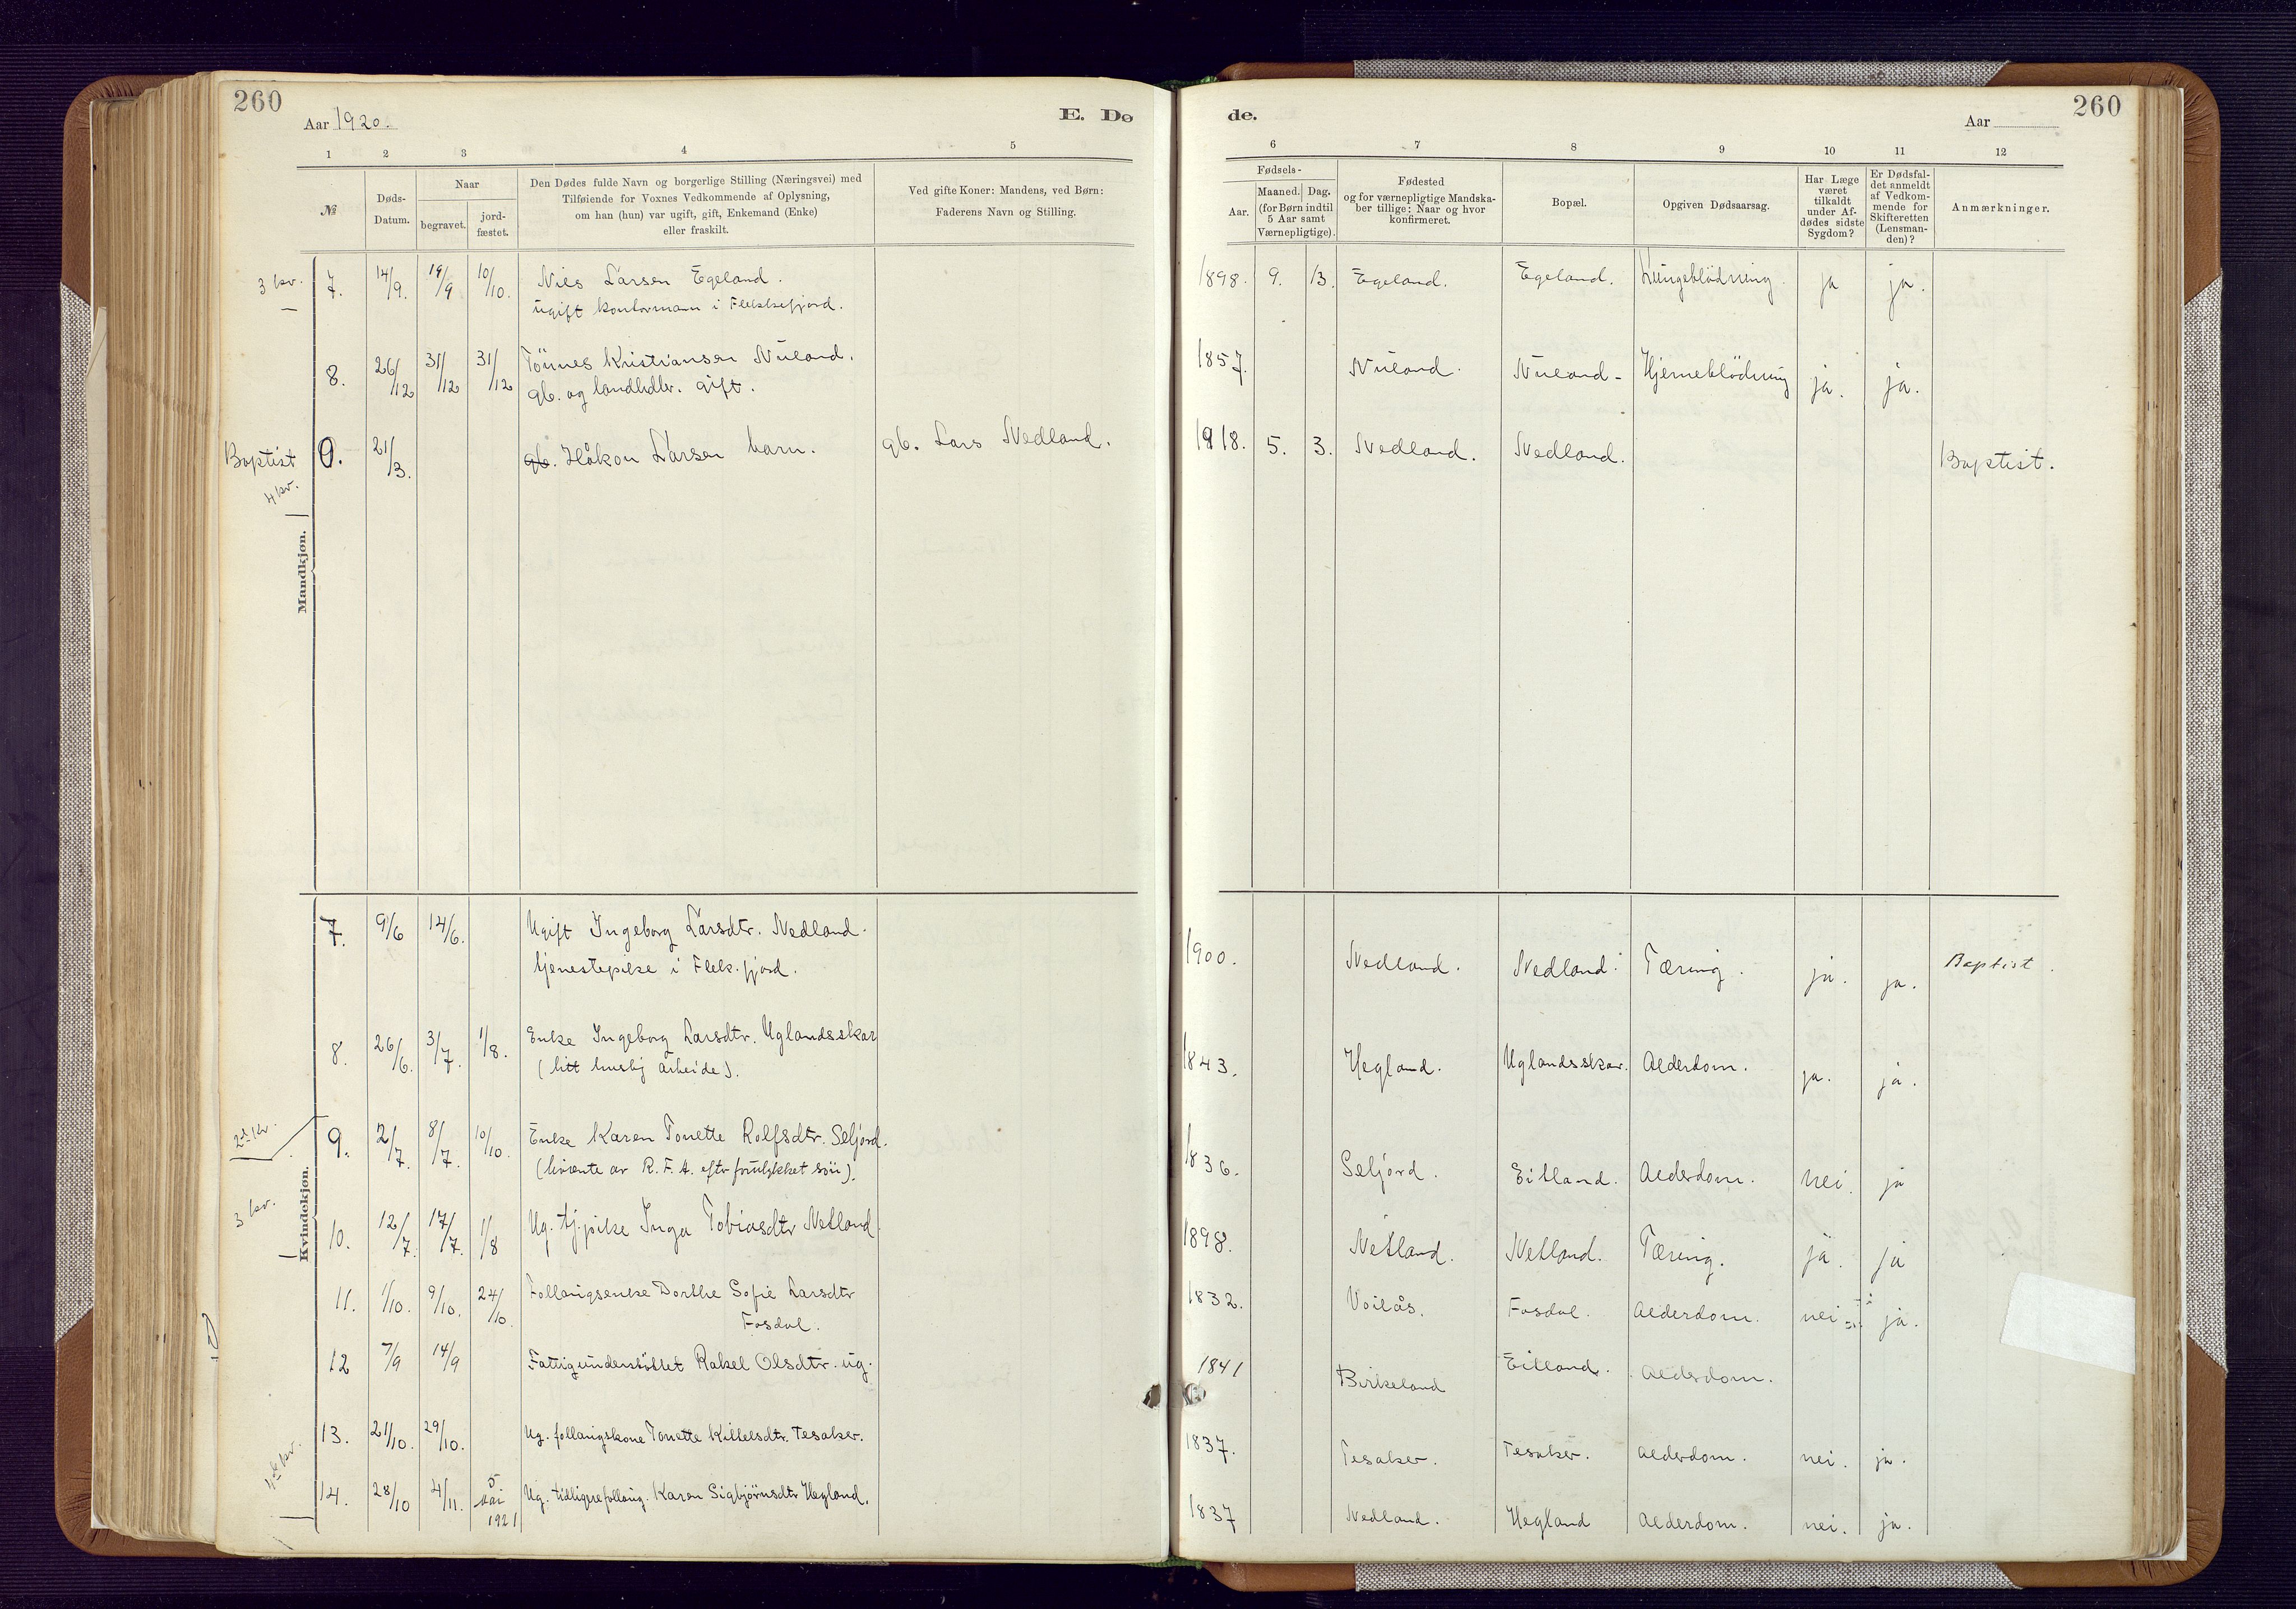 260
Aar 1920.
E. Dø
de.
Aar
260
1 2 3 4 5
6 7 8 9 10 11 12
№
Døds-
Datum.
Naar
begravet.
jord-
fæstet.
Den Dødes fulde Navn og borgerlige Stilling (Næringsvei) med
Tilføiende for Voxnes Vedkommende af Oplysning,
om han (hun) var ugift, gift, Enkemand (Enke)
eller fraskilt.
Ved gifte Koner: Mandens, ved Børn:
Faderens Navn og Stilling.
Fødsels-
Aar.
Maaned. Dag.
(for Børn indtil
5 Aar samt
Værnepligtige).
Fødested
og for værnepligtige Mandska-
ber tillige: Naar og hvor
konfirmeret.
Bopæl.
Opgiven Dødsaarsag.
Har Læge
været
tilkaldt
under Af-
dødes sidste
Sygdom?
Er Dødsfal-
det anmeldt
af Vedkom-
mende for
Skifteretten
(Lensman-
den)?
Anmærkninger.
3 kv. 7. 14/9. 19/9 10/10. Niels Larsen Egeland. 1898. 9. 13. Egeland. Egeland. Lungeblödning. ja ja.
ugift kontormann i Flekkefjord.
8. 26/12 31/12 31/12 Tönnes Kristiansen Nuland. 1857. Nuland. Nuland - Hjerneblödning ja. ja.
gb. og landhdlr. gift.
Baptist 0. 21/3. gb. Håkon Larsen barn. gb. Lars Nedland. 1918. 5. 3. Nedland. Nedland. Baptist.
4 kv.
Mandkjøn.
7. 9/6 14/6. Ugift Ingeborg Larsdtr. Nedland. 1900. Nedland. Nedland. Tæring. ja. ja. Baptist.
tjenestepike i Flek.fjord.
8. 26/6. 3/7. 1/8. Enke Ingeborg Larsdtr. Uglandsskar 1843. Hegland. Uglandsskar. Alderdom. ja. ja.
(litt huslig arbeide).
2det kv. 9. 2/7. 8/7. 10/10. Enke Karen Tonette Rolfsdtr. Seljord. 1836. Seljord. Eitland. Alderdom. nei. ja
(livrente av R.F.A. eftr forulykket sön).
3 kv. 10. 12/7. 17/7. 1/8 Ug. tj.pike Inga Tobiasdtr Netland. 1898. Netland. Netland. Tæring. ja. ja
Kvindekjøn.
11. 1/10. 9/10. 24/10. Follaugsenke Dorthe Sofie Larsdtr 1832. Voilås. Fosdal. Alderdom. nei ja.
Fosdal.
12 7/9 14/9 Fattigunderstöttet Rakel Olsdtr. ug. 1841 Birkeland Eitland. Alderdom.
13. 21/10. 29/10. Ug. follaugskone Tonette Killelsdtr. Tesaker. 1837. Tesaker. Tesaker. Alderdom. nei. ja.
14. 28/10 4/11. 5/mai 1921 Ug. tidligere follaug. Karen Sigbjörnsdtr Hegland. 1837 Nedland. Hegland Alderdom. nei. ja.